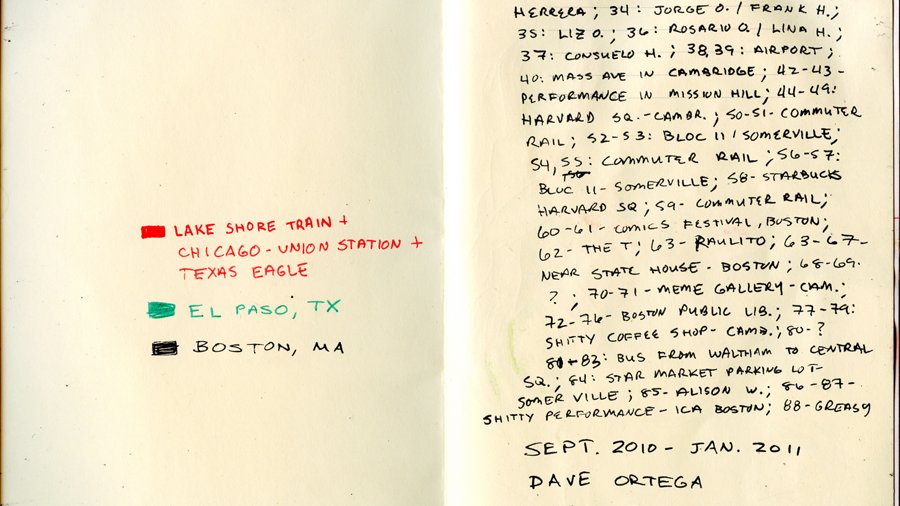 LAKE SHORE TRAIN +
CHICAGO - UNION STATION +
TEXAS EAGLE
EL PASO, TX
BOSTON, MA
HERRERA; 34: JORGE O. / FRANK H.;
35: LIZ O.; 36: ROSARIO O. / LINA H.;
37: CONSUELO H.; 38,39: AIRPORT;
40: MASS AVE IN CAMBRIDGE; 42-43-
PERFORMANCE IN MISSION HILL; 44-49:
HARVARD SQ.-CAMBR.; 50-51- COMMUTER
RAIL; 52-53: BLOC 11 / SOMERVILLE;
54, 55: COMMUTER RAIL; 56-57:
BLOC 11- SOMERVILLE; 58- STARBUCKS
HARVARD SQ; 59- COMMUTER RAIL;
60-61- COMICS FESTIVAL, BOSTON;
62- THE T; 63- RAULITO; 63-67-
NEAR STATE HOUSE - BOSTON; 68-69-
?; 70-71- MEME GALLERY - CAM.;
72-76- BOSTON PUBLIC LIB.; 77-79:
SHITTY COFFEE SHOP- CAMB.; 80-?
81+83: BUS FROM WALTHAM TO CENTRAL
SQ.; 84: STAR MARKET PARKING LOT-
SOMERVILLE; 85- ALISON W.; 86-87-
SHITTY PERFORMANCE - ICA BOSTON; 88-GREASY
SEPT. 2010 - JAN. 2011
DAVE ORTEGA